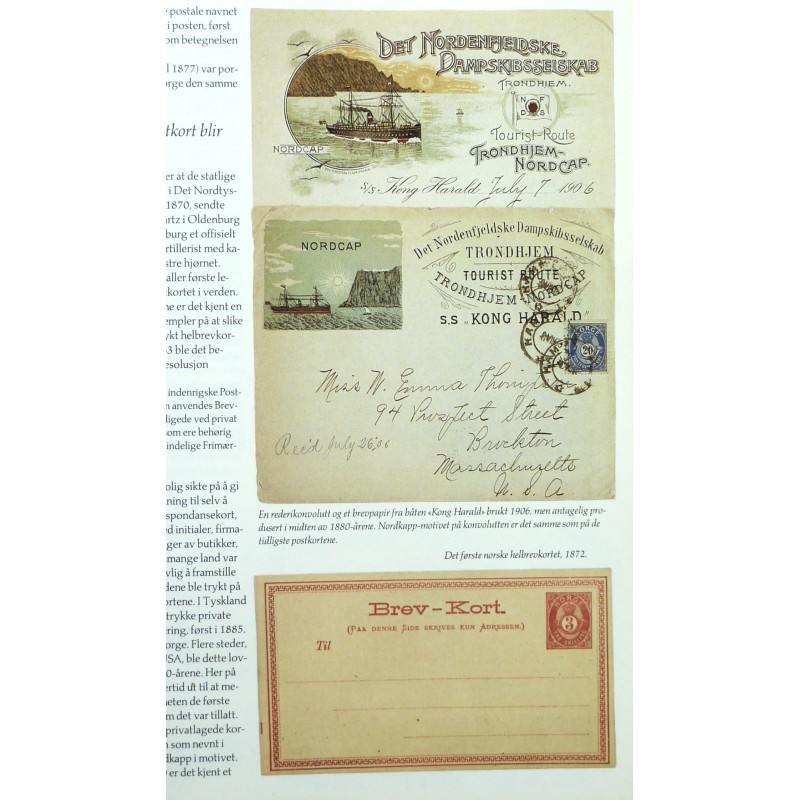 postale navnet
i posten, først
om betegnelsen
1877) var por-
orge den samme
tkort blir
er at de statlige
i Det Nordtys-
1870, sendte
artz i Oldenburg
burg et offisielt
rtillerist med ka-
stre hjørnet.
aller første le-
kortet i verden.
ne er det kjent en
empler på at slike
ykt helbrevkor-
3 ble det be-
esolusjon
indenrigske Post-
n anvendes Brev-
ligede ved privat
som ere behørig
indelige Frimær-
olig sikte på å gi
ning til selv å
spondansekort,
ed initialer, firma-
ger av butikker,
mange land var
vlig å framstille
dene ble trykt på
ortene. I Tyskland
trykke private
ering, først i 1885.
orge. Flere steder,
USA, ble dette lov-
0-årene. Her på
ertid ut til at me-
heten de første
m det var tillatt.
privatlagede kor-
n som nevnt i
dkapp i motivet.
er det kjent et
DET NORDENFJELDSKE
DAMPSKIBSSELSKAB
TRONDHJEM.
N F
D S
NORDCAP
Tourist-Route
TRONDHJEM-
NORDCAP.
S/S Kong Harald July 7 1906
NORDCAP
Det Nordenfjeldske Dampskibsselskab
TRONDHJEM
TOURIST ROUTE
TRONDHJEM-NORDCAP
S.S „KONG HARALD"
NORGE
20
Miss W. Emma Thompson
94 Prospect Street
Brockton
Massachusetts
U. S. A
Rec'd July 26, 06
En rederikonvolutt og et brevpapir fra båten «Kong Harald» brukt 1906, men antagelig pro-
dusert i midten av 1880-årene. Nordkapp-motivet på konvolutten er det samme som på de
tidligste postkortene.
Det første norske helbrevkortet, 1872.
Brev-Kort.
(PAA DENNE SIDE SKRIVES KUN ADRESSEN.)
Til
NORGE
3